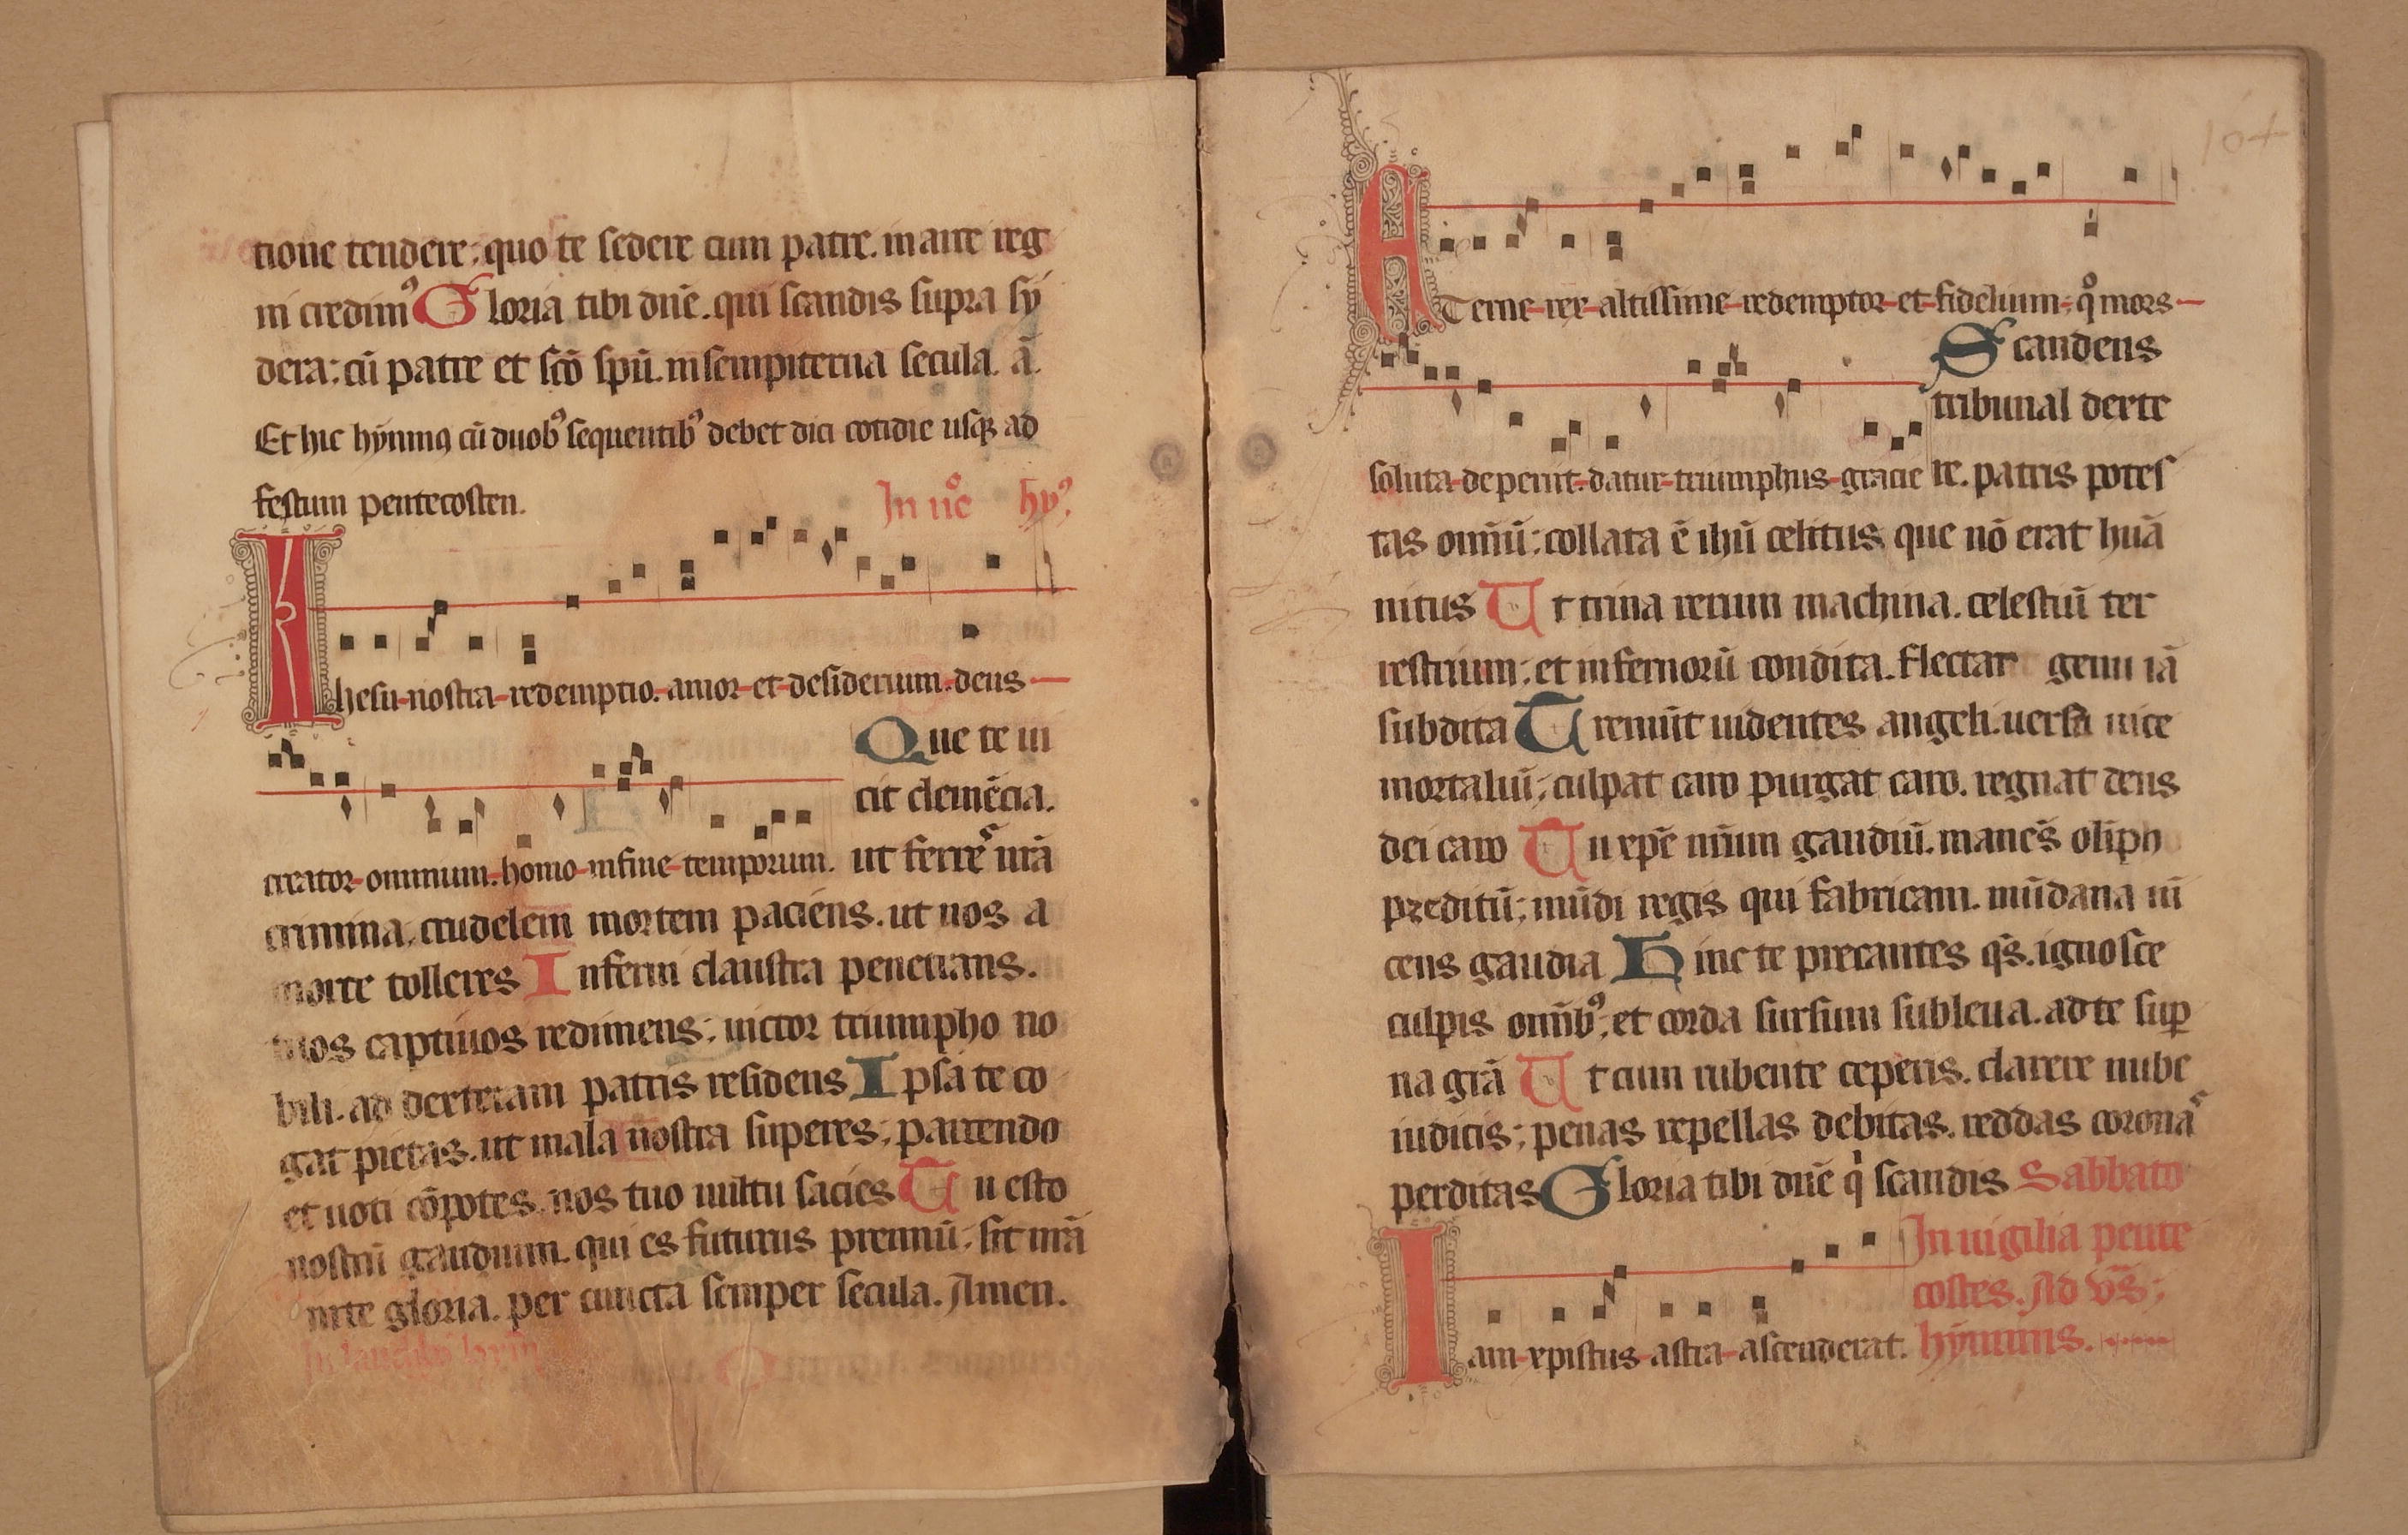 tione tendere; quo te sedere cum patre. in arce reg
ni credim⁹ Gloria tibi dn̄e. qui scandis supra sy
dera; cū patre et sc̄o sp̄u. in sempiterna secula. ā.
Et hic hẏmnꝰ cū duob⁹ sequentib⁹ debet dici cotidie usqꝫ ad
festum pentecosten. In noc̄ hy⁹.
Ihesu nostra redemptio. amor et desiderium. deus
Que te ui
creator omnium. homo in fine temporum. cit clemēcia.
ut ferres nr̄a
crimina. crudelem mortem paciens. ut nos a
morte tolleres Inferni claustra penetrans.
tuos captiuos redimens; uictor triumpho no
bili. ad dexteram patris residens Ipsa te co
gat pietas. ut mala nostra superes; parcendo
et uoti cōpotes. nos tuo uultu sacies Tu esto
nostrū gaudium. qui es futurus premiū; sit nr̄a
in te gloria. per cuncta semper secula. Amen.
In laudib⁹ hym̄
104
ATerne rex altissime redemptor et fidelium; qͦ mors
Scandens
tribunal dexte
soluta deperiit. datur triumphus gracie re. patris potes
tas omn̄iū; collata ē ih̄u celitus que nō erat huā
nitus Ut trina rerum machina. celestiū ter
restrium; et infernorū condita. flectat genu iā
subdita Tremūt uidentes angeli. uersa uice
mortaliū; culpat caro purgat caro. regnat deus
dei caro Tu xp̄e nr̄um gaudiū. manēs olīpo
preditū; mūdi regis qui fabricam. mūdana uī
cens gaudia Hinc te precantes qs̄. ignosce
culpis omīb⁹; et corda sursum subleua. ad te sup̲
na gr̄a Ut cum rubente ceperis. clarere nube
iudicis; penas repellas debitas. reddas coronas
perditas Gloria tibi dn̄e qͥ scandis Sabbato
In uigilia pente
costes. Ad vs̄;
Iam xpistus astra ascenderat. hẏmnus.